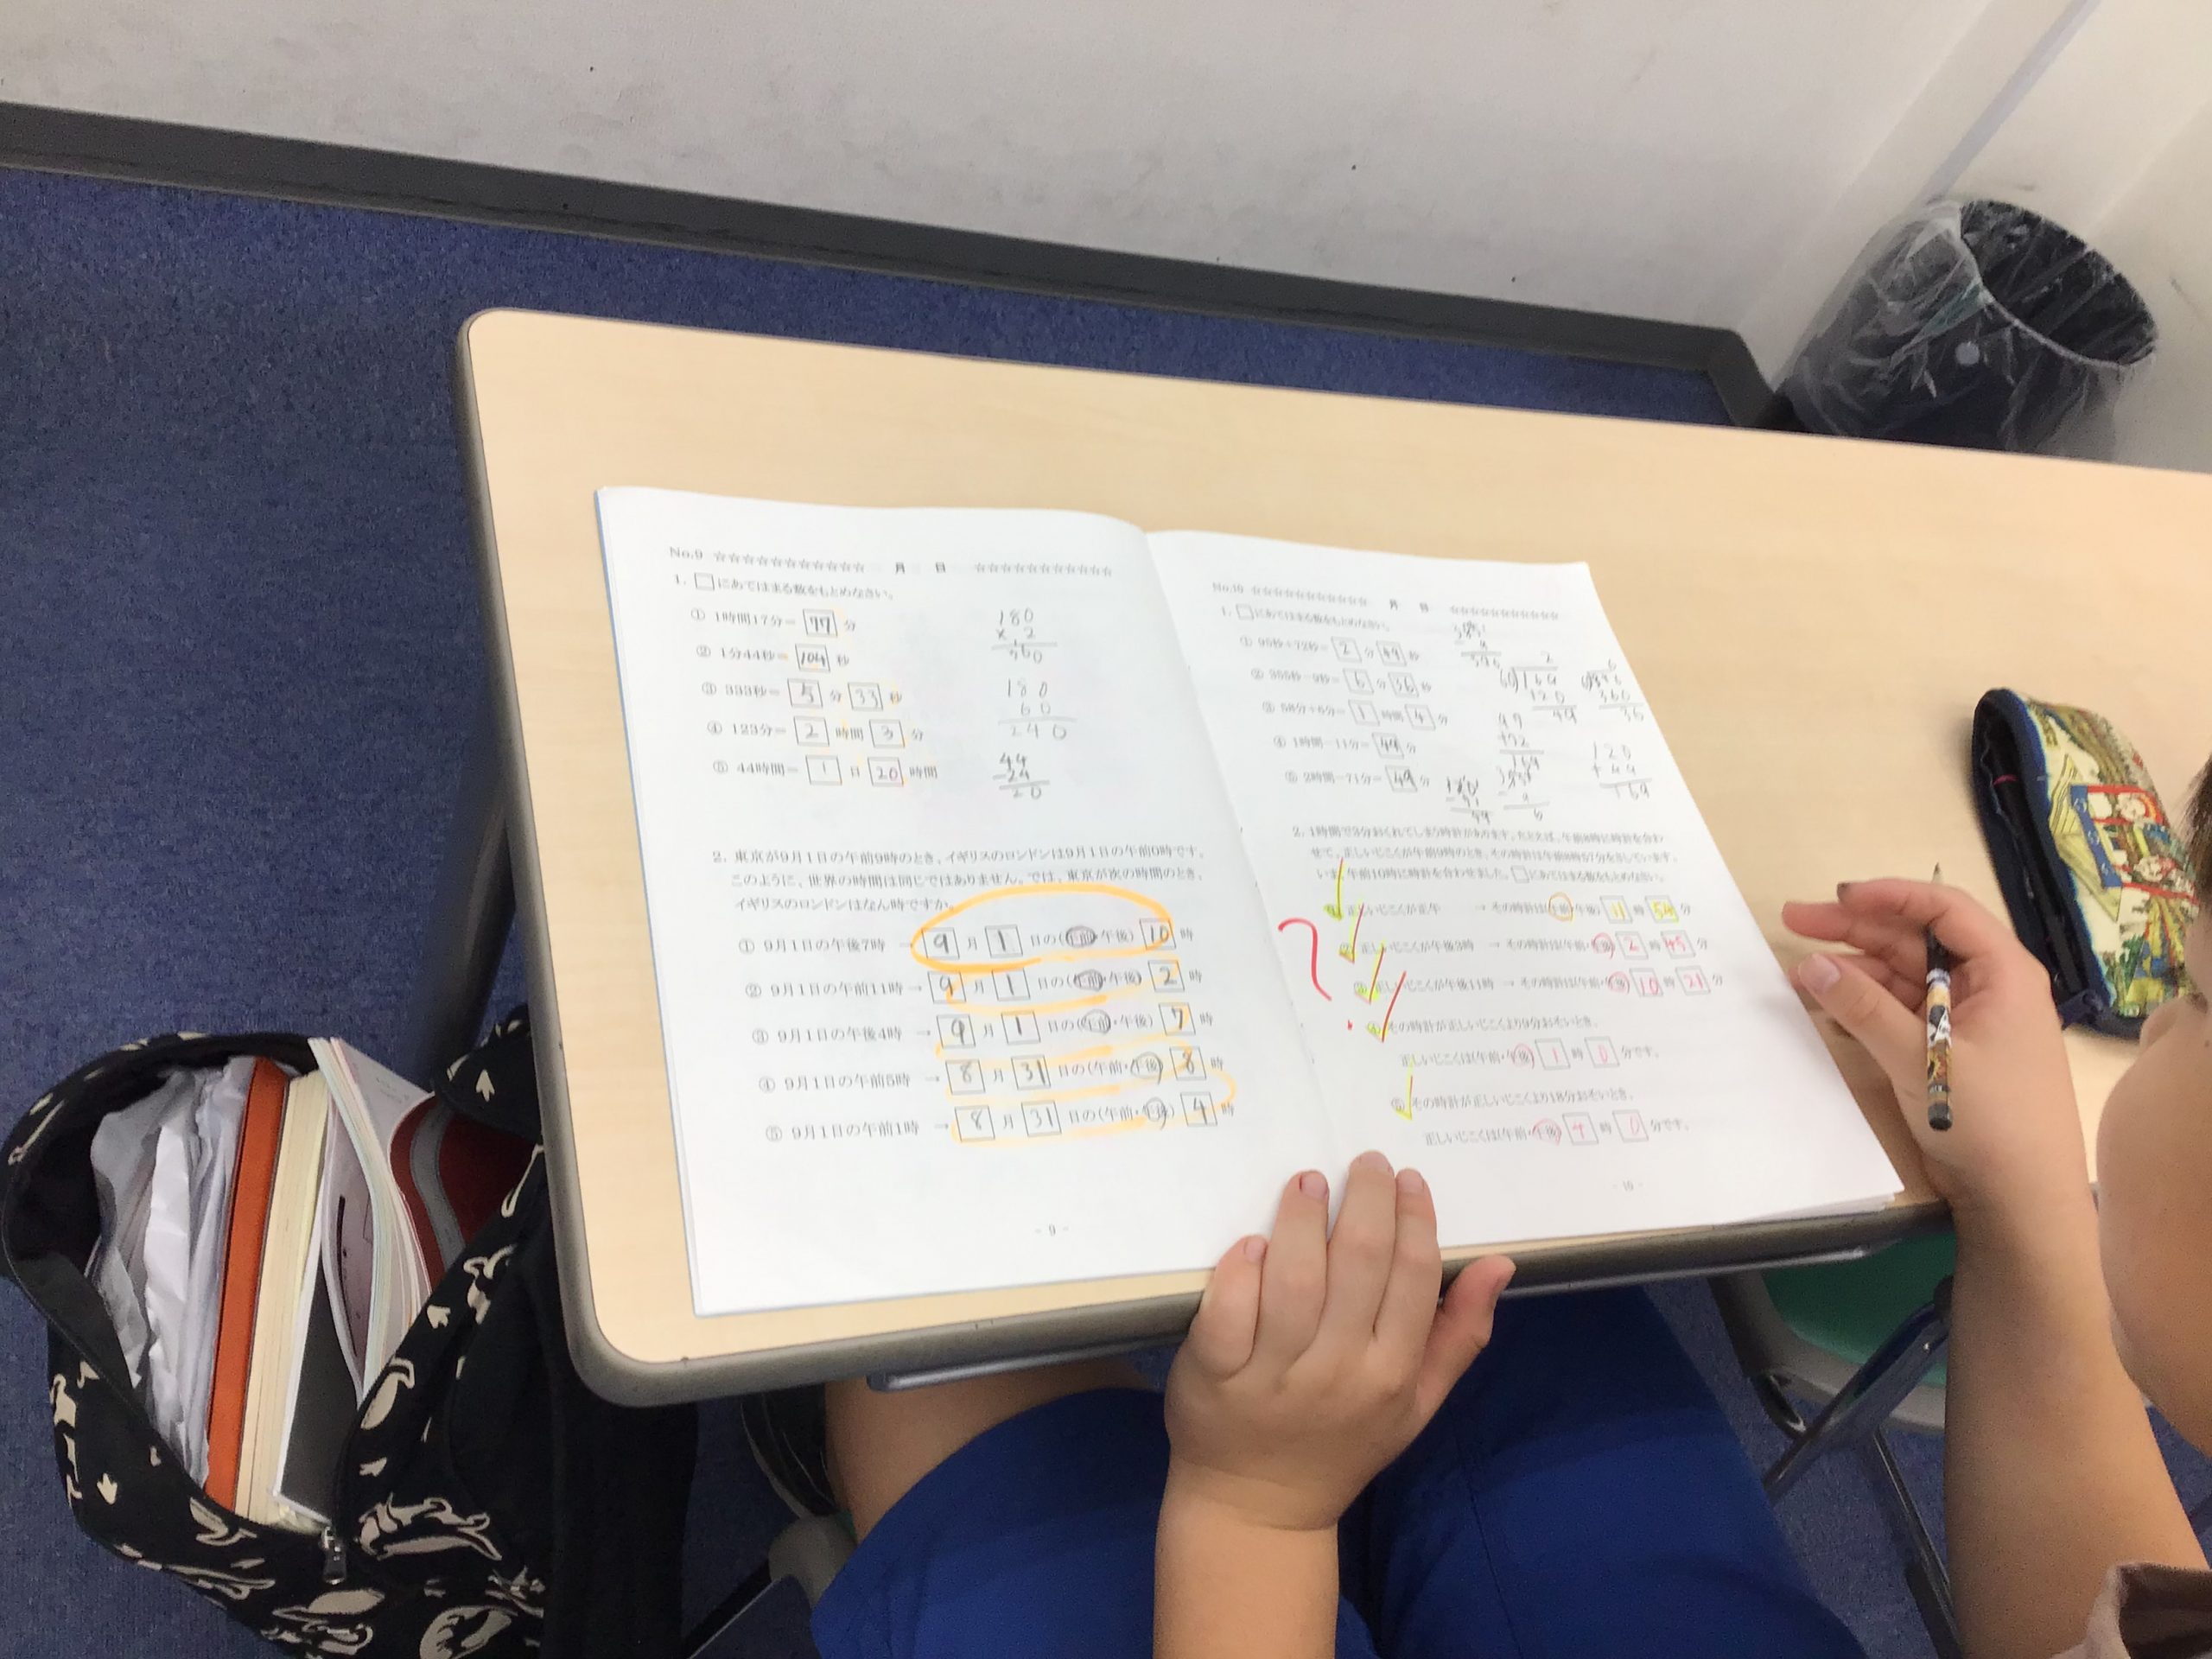 No.9 ☆☆☆☆☆☆☆☆☆☆☆ 月 日 ☆☆☆☆☆☆☆☆☆☆☆
1. □にあてはまる数をもとめなさい。
① 1時間17分= 77 分
② 1分44秒= 104 秒
③ 333秒= 5 分 33 秒
④ 123分= 2 時間 3 分
⑤ 44時間= 1 日 20 時間
180
× 2
360
180
60
240
44
-24
20
2. 東京が9月1日の午前9時のとき、イギリスのロンドンは9月1日の午前0時です。
このように、世界の時間は同じではありません。では、東京が次の時間のとき、
イギリスのロンドンはなん時ですか。
① 9月1日の午後7時 → 9 月 1 日の(午前・午後) 10 時
② 9月1日の午前11時 → 9 月 1 日の(午前・午後) 2 時
③ 9月1日の午後4時 → 9 月 1 日の(午前・午後) 7 時
④ 9月1日の午前5時 → 8 月 31 日の(午前・午後) 8 時
⑤ 9月1日の午前1時 → 8 月 31 日の(午前・午後) 4 時
- 9 -
No.10 ☆☆☆☆☆☆☆☆☆☆☆ 月 日 ☆☆☆☆☆☆☆☆☆☆☆
1. □にあてはまる数をもとめなさい。
① 95秒+72秒= 2 分 49 秒
② 6 分 36 秒
③ 58分+6分= 1 時間 4 分
④ 1時間-11分= 49 分
⑤ 2時間-71分= 49 分
120
+ 49
169
2. 1時間で3分おくれてしまう時計があります。たとえば、午前8時に時計を合わ
せて、正しいじこくが午前9時のとき、その時計は午前8時57分を示しています。
いま、午前10時に時計を合わせました。□にあてはまる数をもとめなさい。
① 正しいじこくが正午 → その時計は(午前・午後) 11 時 54 分
② 正しいじこくが午後3時 → その時計は(午前・午後) 2 時 45 分
③ 正しいじこくが午後11時 → その時計は(午前・午後) 10 時 21 分
④ その時計が正しいじこくより9分おそいとき、
正しいじこくは(午前・午後) 1 時 0 分です。
⑤ その時計が正しいじこくより18分おそいとき、
正しいじこくは(午前・午後) 4 時 0 分です。
- 10 -